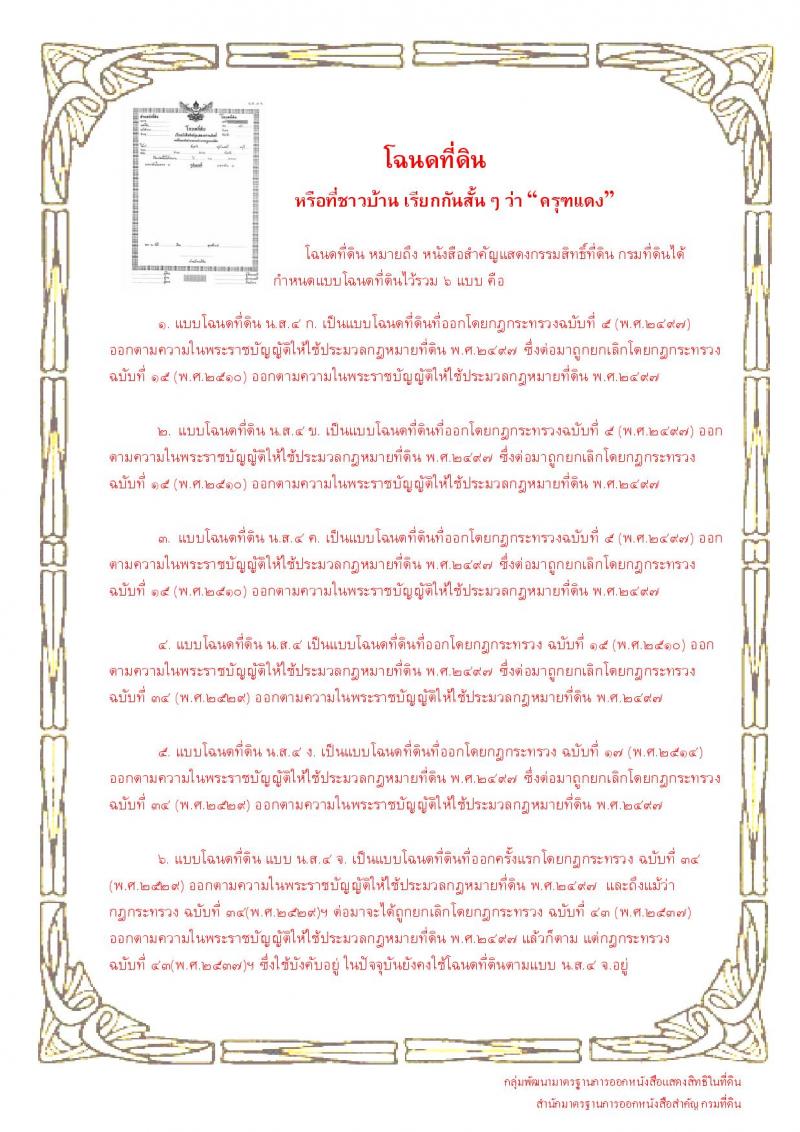 โฉนดที่ดิน
โฉนดที่ดิน
หรือที่ชาวบ้าน เรียกกันสั้น ๆ ว่า “ครุฑแดง”
โฉนดที่ดิน หมายถึง หนังสือสำคัญแสดงกรรมสิทธิ์ที่ดิน กรมที่ดินได้
กำหนดแบบโฉนดที่ดินไว้รวม ๖ แบบ คือ
๑. แบบโฉนดที่ดิน น.ส.๔ ก. เป็นแบบโฉนดที่ดินที่ออกโดยกฎกระทรวงฉบับที่ ๕ (พ.ศ.๒๔๙๗)
ออกตามความในพระราชบัญญัติให้ใช้ประมวลกฎหมายที่ดิน พ.ศ.๒๔๙๗ ซึ่งต่อมาถูกยกเลิกโดยกฎกระทรวง
ฉบับที่ ๑๕ (พ.ศ.๒๕๑๐) ออกตามความในพระราชบัญญัติให้ใช้ประมวลกฎหมายที่ดิน พ.ศ.๒๔๙๗
๒. แบบโฉนดที่ดิน น.ส.๔ ข. เป็นแบบโฉนดที่ดินที่ออกโดยกฎกระทรวงฉบับที่ ๕ (พ.ศ.๒๔๙๗) ออก
ตามความในพระราชบัญญัติให้ใช้ประมวลกฎหมายที่ดิน พ.ศ.๒๔๙๗ ซึ่งต่อมาถูกยกเลิกโดยกฎกระทรวง
ฉบับที่ ๑๕ (พ.ศ.๒๕๑๐) ออกตามความในพระราชบัญญัติให้ใช้ประมวลกฎหมายที่ดิน พ.ศ.๒๔๙๗
๓. แบบโฉนดที่ดิน น.ส.๔ ค. เป็นแบบโฉนดที่ดินที่ออกโดยกฎกระทรวงฉบับที่ ๕ (พ.ศ.๒๔๙๗) ออก
ตามความในพระราชบัญญัติให้ใช้ประมวลกฎหมายที่ดิน พ.ศ.๒๔๙๗ ซึ่งต่อมาถูกยกเลิกโดยกฎกระทรวง
ฉบับที่ ๑๕ (พ.ศ.๒๕๑๐) ออกตามความในพระราชบัญญัติให้ใช้ประมวลกฎหมายที่ดิน พ.ศ.๒๔๙๗
๔. แบบโฉนดที่ดิน น.ส.๔ เป็นแบบโฉนดที่ดินที่ออกโดยกฎกระทรวง ฉบับที่ ๑๕ (พ.ศ.๒๕๑๐) ออก
ตามความในพระราชบัญญัติให้ใช้ประมวลกฎหมายที่ดิน พ.ศ.๒๔๙๗ ซึ่งต่อมาถูกยกเลิกโดยกฎกระทรวง
ฉบับที่ ๓๔ (พ.ศ.๒๕๒๙) ออกตามความในพระราชบัญญัติให้ใช้ประมวลกฎหมายที่ดิน พ.ศ.๒๔๙๗
๕. แบบโฉนดที่ดิน น.ส.๔ ง. เป็นแบบโฉนดที่ดินที่ออกโดยกฎกระทรวง ฉบับที่ ๑๗ (พ.ศ.๒๕๑๔)
ออกตามความในพระราชบัญญัติให้ใช้ประมวลกฎหมายที่ดิน พ.ศ.๒๔๙๗ ซึ่งต่อมาถูกยกเลิกโดยกฎกระทรวง
ฉบับที่ ๓๔ (พ.ศ.๒๕๒๙) ออกตามความในพระราชบัญญัติให้ใช้ประมวลกฎหมายที่ดิน พ.ศ.๒๔๙๗
๖. แบบโฉนดที่ดิน แบบ น.ส.๔ จ. เป็นแบบโฉนดที่ดินที่ออกครั้งแรกโดยกฎกระทรวง ฉบับที่ ๓๔
(พ.ศ.๒๕๒๙) ออกตามความในพระราชบัญญัติให้ใช้ประมวลกฎหมายที่ดิน พ.ศ.๒๔๙๗ และถึงแม้ว่า
กฎกระทรวง ฉบับที่ ๓๔(พ.ศ.๒๕๒๙)ฯ ต่อมาจะได้ถูกยกเลิกโดยกฎกระทรวง ฉบับที่ ๔๓ (พ.ศ.๒๕๓๗)
ออกตามความในพระราชบัญญัติให้ใช้ประมวลกฎหมายที่ดิน พ.ศ.๒๔๙๗ แล้วก็ตาม แต่กฎกระทรวง
ฉบับที่ ๔๓(พ.ศ.๒๕๓๗)ฯ ซึ่งใช้บังคับอยู่ ในปัจจุบันยังคงใช้โฉนดที่ดินตามแบบ น.ส.๔ จ.อยู่
กลุ่มพัฒนามาตรฐานการออกหนังสือแสดงสิทธิในที่ดิน
สำนักมาตรฐานการออกหนังสือสำคัญ กรมที่ดิน